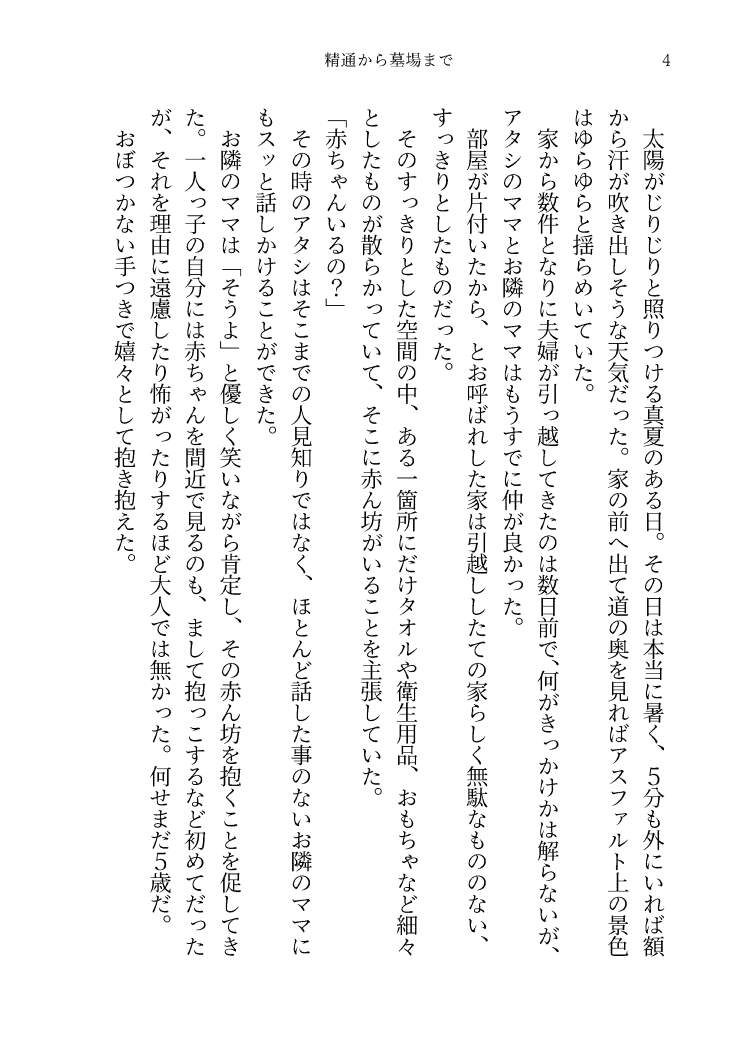 精通から墓場まで
4
太陽がじりじりと照りつける真夏のある日。その日は本当に暑く、５分も外にいれば額
から汗が吹き出しそうな天気だった。家の前へ出て道の奥を見ればアスファルト上の景色
はゆらゆらと揺らめいていた。
家から数件となりに夫婦が引っ越してきたのは数日前で、何がきっかけかは解らないが、
アタシのママとお隣のママはもうすでに仲が良かった。
部屋が片付いたから、とお呼ばれした家は引越ししたての家らしく無駄なもののない、
すっきりとしたものだった。
そのすっきりとした空間の中、ある一箇所にだけタオルや衛生用品、おもちゃなど細々
としたものが散らかっていて、そこに赤ん坊がいることを主張していた。
「赤ちゃんいるの？」
その時のアタシはそこまでの人見知りではなく、ほとんど話した事のないお隣のママに
もスッと話しかけることができた。
お隣のママは「そうよ」と優しく笑いながら肯定し、その赤ん坊を抱くことを促してき
た。一人っ子の自分には赤ちゃんを間近で見るのも、まして抱っこするなど初めてだった
が、それを理由に遠慮したり怖がったりするほど大人では無かった。何せまだ５歳だ。
おぼつかない手つきで嬉々として抱き抱えた。